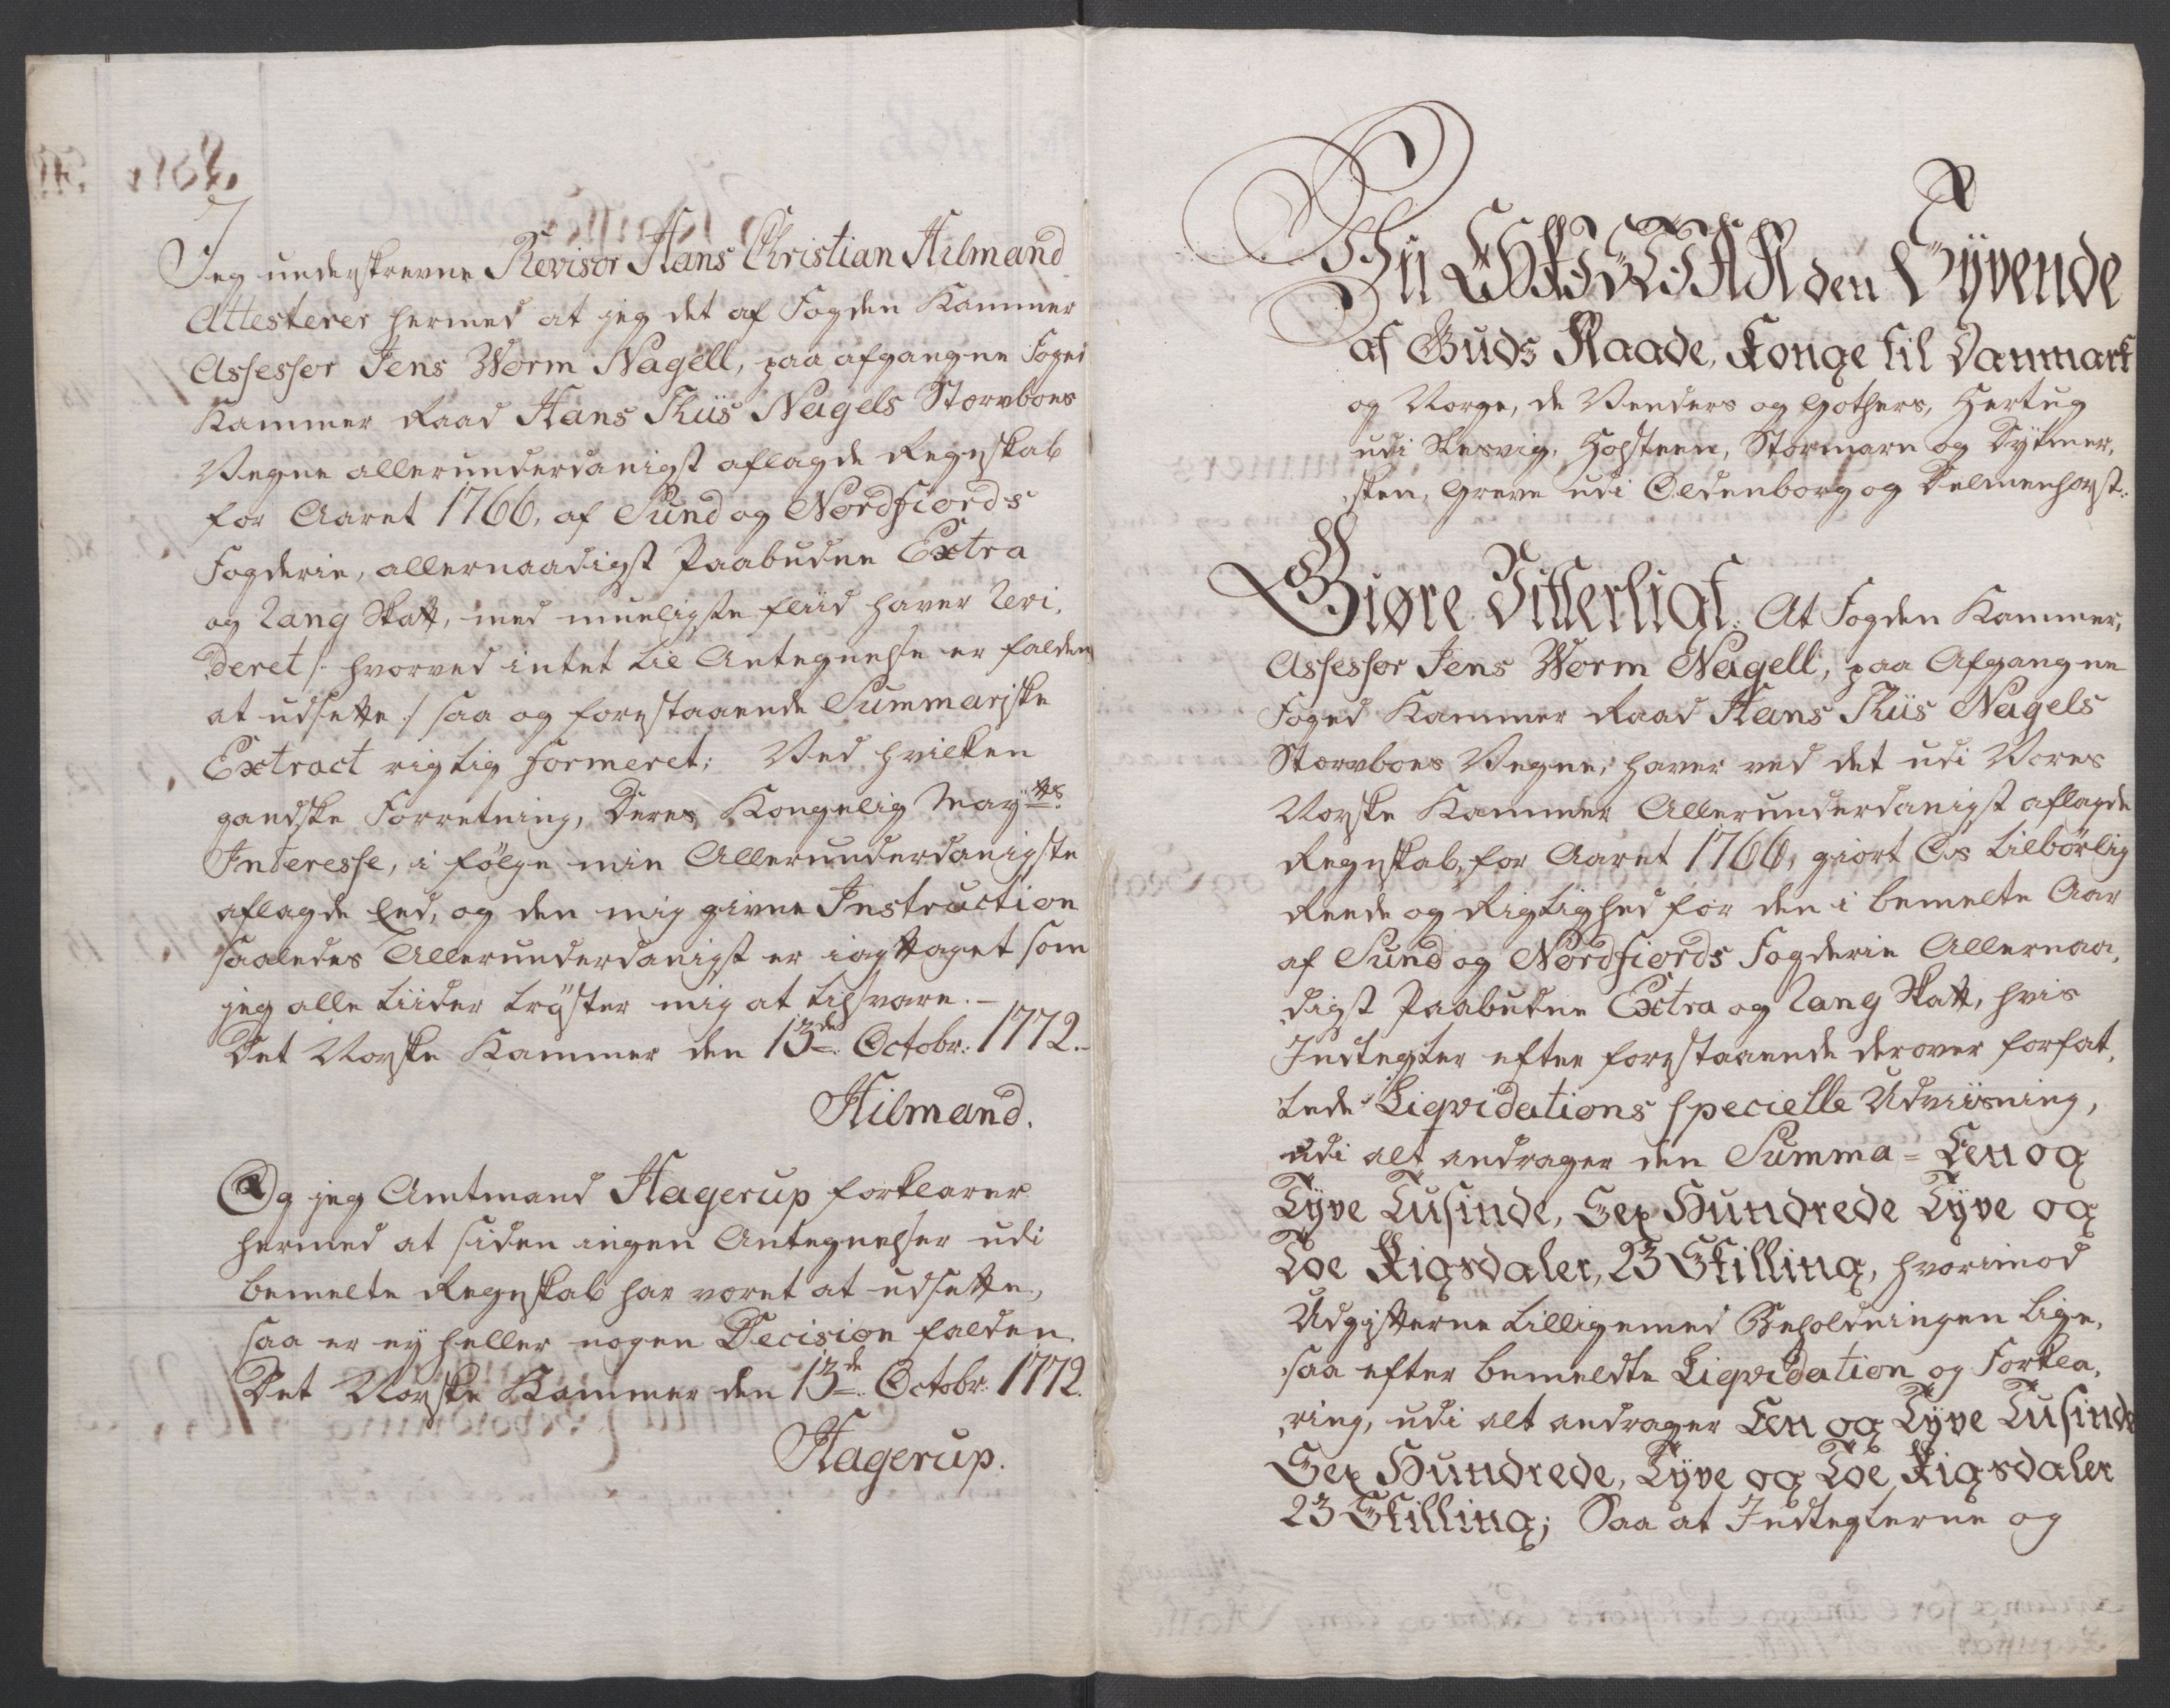 Jeg underskrevne Revisor Hans Christian Hilmand
Attesterer hermed at jeg det af Fogden Kammer
Assessor Jens Worm Nagell, paa afgangne Foged
Kammer Raad Hans Thiis Nagels Stervboes
Vegne allerunderdanigst aflagde Regnskab
for Aaret 1766, af Sund og Nordfiords
Fogderie, allernaadigst Paabudne Extra
og Rang Skatt, med mueligste fliid haver Revi,
deret /: hvorved intet til Antegnelse er falden
at udsette :/ saa og forestaaende Summariske
Extract rigtig formeret; Ved hvilken
gandske Forretning, Deres Kongelig Mayts
Interesse, i følge min Allerunderdanigste
aflagde Eed, og den mig givne Instruction
saaledes Allerunderdanigst er iagttaget som
jeg alle tiider trøster mig at tilsvare.
Det Norske Kammer den 13de Octobr: 1772.
Hilmand.
Og jeg Amtmand Hagerup forklarer
hermed at siden ingen Antegnelser udi
bemelte Regnskab har været at udsette,
saa er ey heller nogen Decision falden.
Det Norske Kammer den 13de Octobr: 1772.
Hagerup.
Vii CHRISTIAN den Syvende
af Guds Naade, Konge til Danmark
og Norge, de Venders og Gothers, Hertug
udi Slesvig, Holsteen, Stormarn og Dytmer,
sken, Greve udi Oldenborg og Delmenhorst.
Giøre Vitterligt: At Fogden Kammer,
Assessor Jens Worm Nagell, paa Afgangne
Foged Kammer Raad Hans Thiis Nagels
Stervboes Vegne, haver ved det udi Vores
Norske Kammer Allerunderdanigst aflagde
Regnskab, for Aaret 1766, giort Os tilbørlig
Rede og Rigtighed for den i bemelte Aar
af Sund og Nordfiords Fogderie Allernaa,
digst Paabudne Extra og Rang Skatt, hvis
Indtegter efter forestaaende derover forfat,
tede Liqvidations specielle Udviisning,
udi alt andrager den Summa = Een og
Tyve Tusinde, Sex Hundrede Tyve og
Toe Rigsdaler, 23 Skilling, hvorimod
Udgifterne tilligemed Beholdningen lige,
saa efter bemeldte Liqvidation og Forkla,
ring, udi alt andrager Een og Tyve Tusinde
Sex Hundrede, Tyve og Toe Rigsdaler
23 Skilling; Saa at Indtegterne og